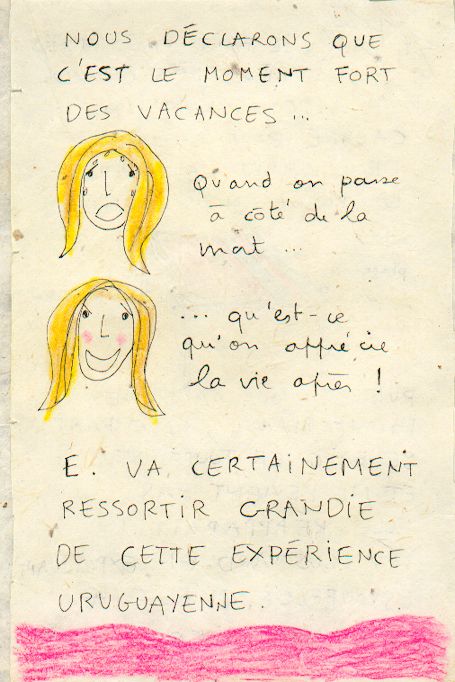 NOUS DÉCLARONS QUE
C'EST LE MOMENT FORT
DES VACANCES...
Quand on passe
à côté de la
mort...
... qu'est-ce
qu'on apprécie
la vie après !
E. VA CERTAINEMENT
RESSORTIR GRANDIE
DE CETTE EXPÉRIENCE
URUGUAYENNE.